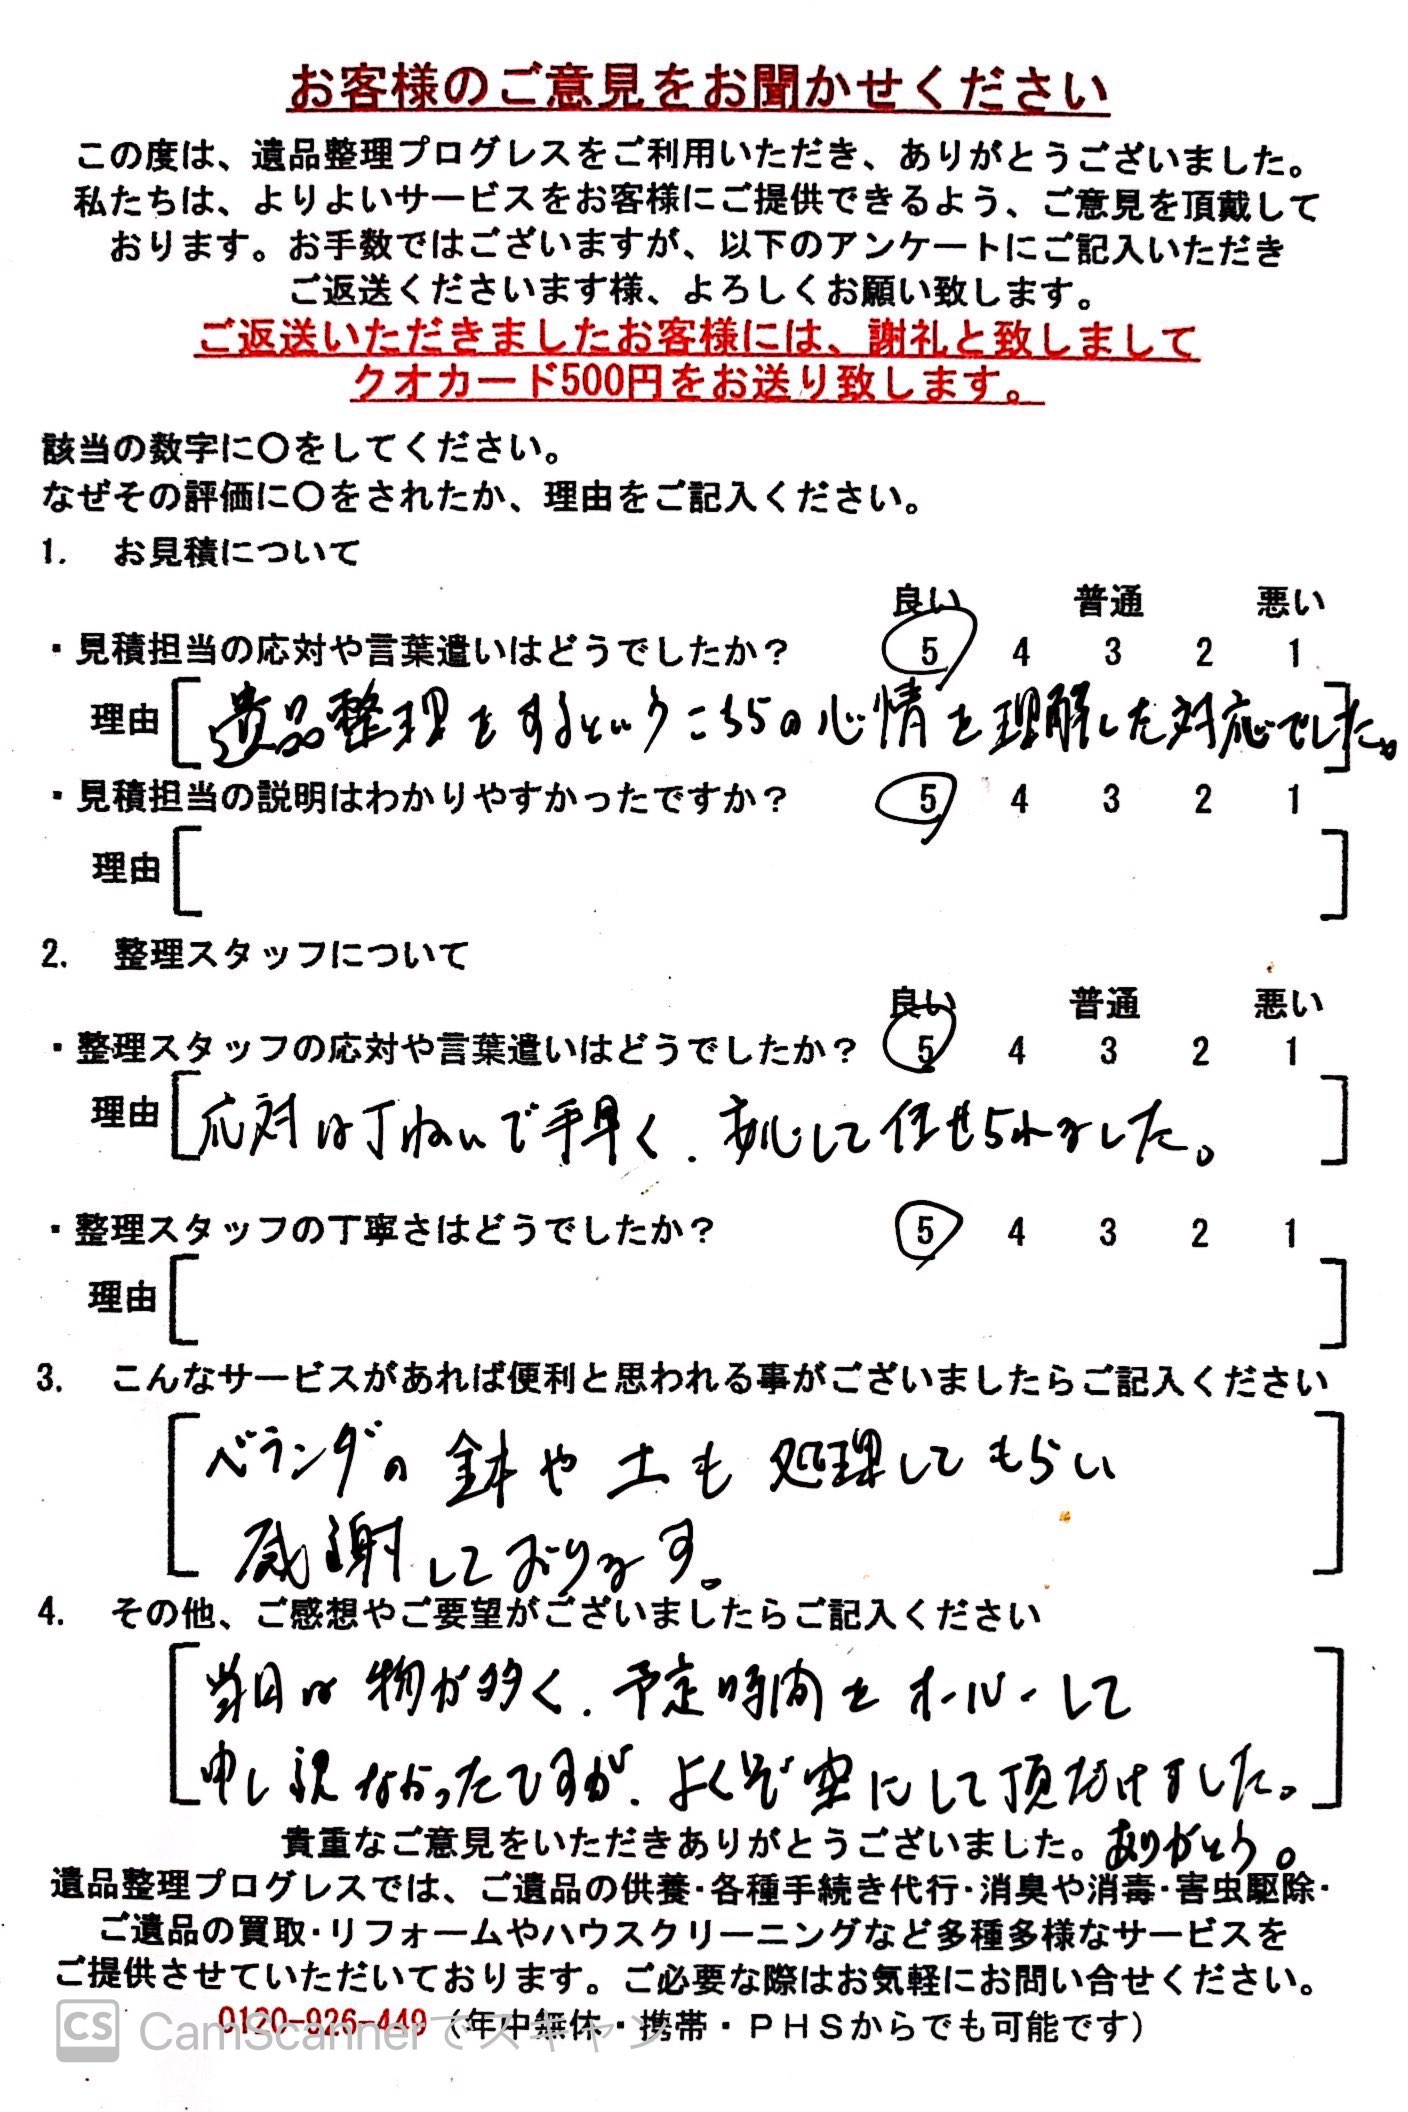 お客様のご意見をお聞かせください
この度は、遺品整理プログレスをご利用いただき、ありがとうございました。
私たちは、よりよいサービスをお客様にご提供できるよう、ご意見を頂戴して
おります。お手数ではございますが、以下のアンケートにご記入いただき
ご返送くださいます様、よろしくお願い致します。
ご返送いただきましたお客様には、謝礼と致しまして
クオカード500円をお送り致します。
該当の数字に〇をしてください。
なぜその評価に〇をされたか、理由をご記入ください。
1. お見積について
良い 普通 悪い
・見積担当の応対や言葉遣いはどうでしたか? 5 4 3 2 1
理由 遺品整理をするというこちらの心情を理解した対応でした。
・見積担当の説明はわかりやすかったですか? 5 4 3 2 1
理由
2. 整理スタッフについて
良い 普通 悪い
・整理スタッフの応対や言葉遣いはどうでしたか? 5 4 3 2 1
理由 応対は丁ねいで手早く、安心して任せられました。
・整理スタッフの丁寧さはどうでしたか? 5 4 3 2 1
理由
3. こんなサービスがあれば便利と思われる事がございましたらご記入ください
ベランダの鉢や土も処理してもらい
感謝しております。
4. その他、ご感想やご要望がございましたらご記入ください
当日は物が多く、予定時間をオーバーして
申し訳なかったですが、よくぞ空にして頂だけました。
貴重なご意見をいただきありがとうございました。ありがとう。
遺品整理プログレスでは、ご遺品の供養・各種手続き代行・消臭や消毒・害虫駆除・
ご遺品の買取・リフォームやハウスクリーニングなど多種多様なサービスを
ご提供させていただいております。ご必要な際はお気軽にお問い合せください。
0120-926-449 (年中無休・携帯・PHSからでも可能です)
CS CamScannerでスキャン